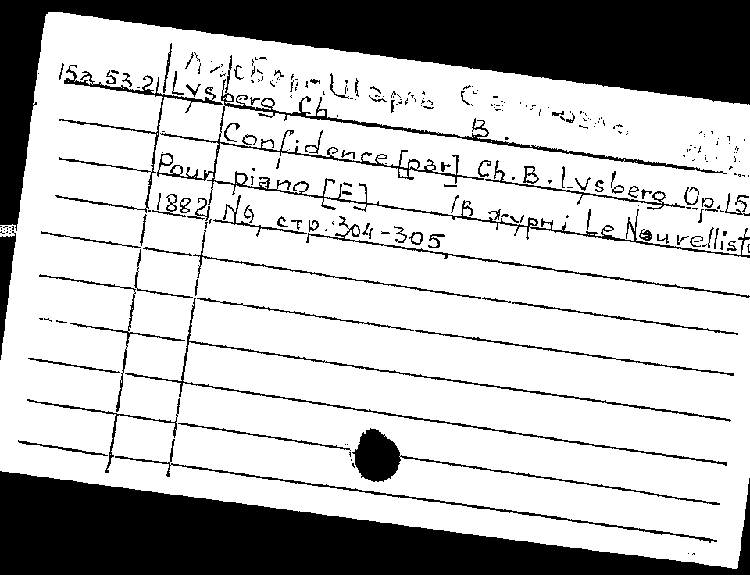 Лисберг Шарль Самюэль
15a.53.2 Lysberg, Ch. B.
Confidence [par] Ch. B. Lysberg Op. 15
Pour piano [E]. (В журн: Le Nouvelliste
1882 №9, стр. 304-305,